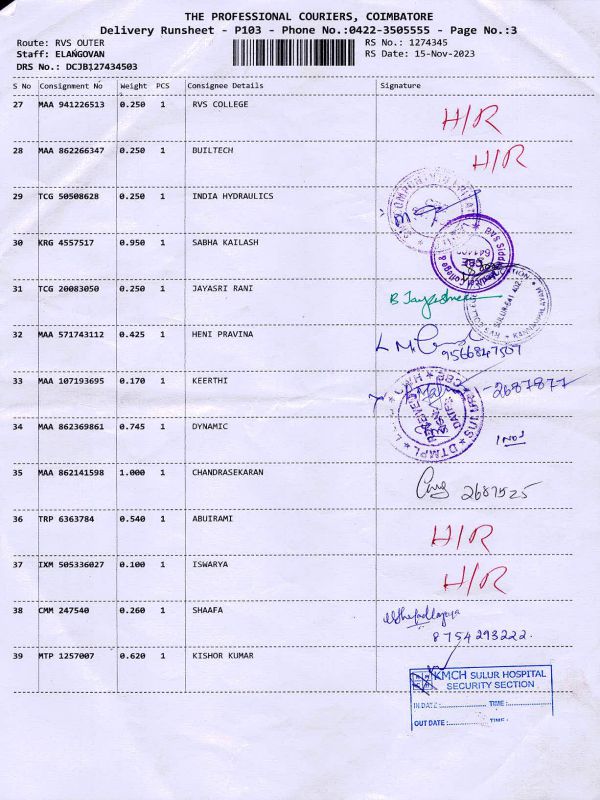 THE PROFESSIONAL COURIERS, COIMBATORE
Delivery Runsheet - P103 - Phone No.:0422-3505555 - Page No.:3
Route: RVS OUTER RS No.: 1274345
Staff: ELANGOVAN RS Date: 15-Nov-2023
DRS No.: DCJB127434503
S No Consignment No Weight PCS Consignee Details Signature
27 MAA 941226513 0.250 1 RVS COLLEGE H/R
28 MAA 862266347 0.250 1 BUILTECH H/R
29 TCG 50508628 0.250 1 INDIA HYDRAULICS
30 KRG 4557517 0.950 1 SABHA KAILASH
31 TCG 20083050 0.250 1 JAYASRI RANI
32 MAA 571743112 0.425 1 HENI PRAVINA
9566847507
33 MAA 107193695 0.170 1 KEERTHI -2687877
34 MAA 862369861 0.745 1 DYNAMIC
35 MAA 862141598 1.000 1 CHANDRASEKARAN 2687525
36 TRP 6363784 0.540 1 ABUIRAMI H/R
37 IXM 505336027 0.100 1 ISWARYA H/R
38 CMM 247540 0.260 1 SHAAFA
8754293222.
39 MTP 1257007 0.620 1 KISHOR KUMAR
KMCH SULUR HOSPITAL
SECURITY SECTION
IN DATE: TIME:
OUT DATE: TIME: